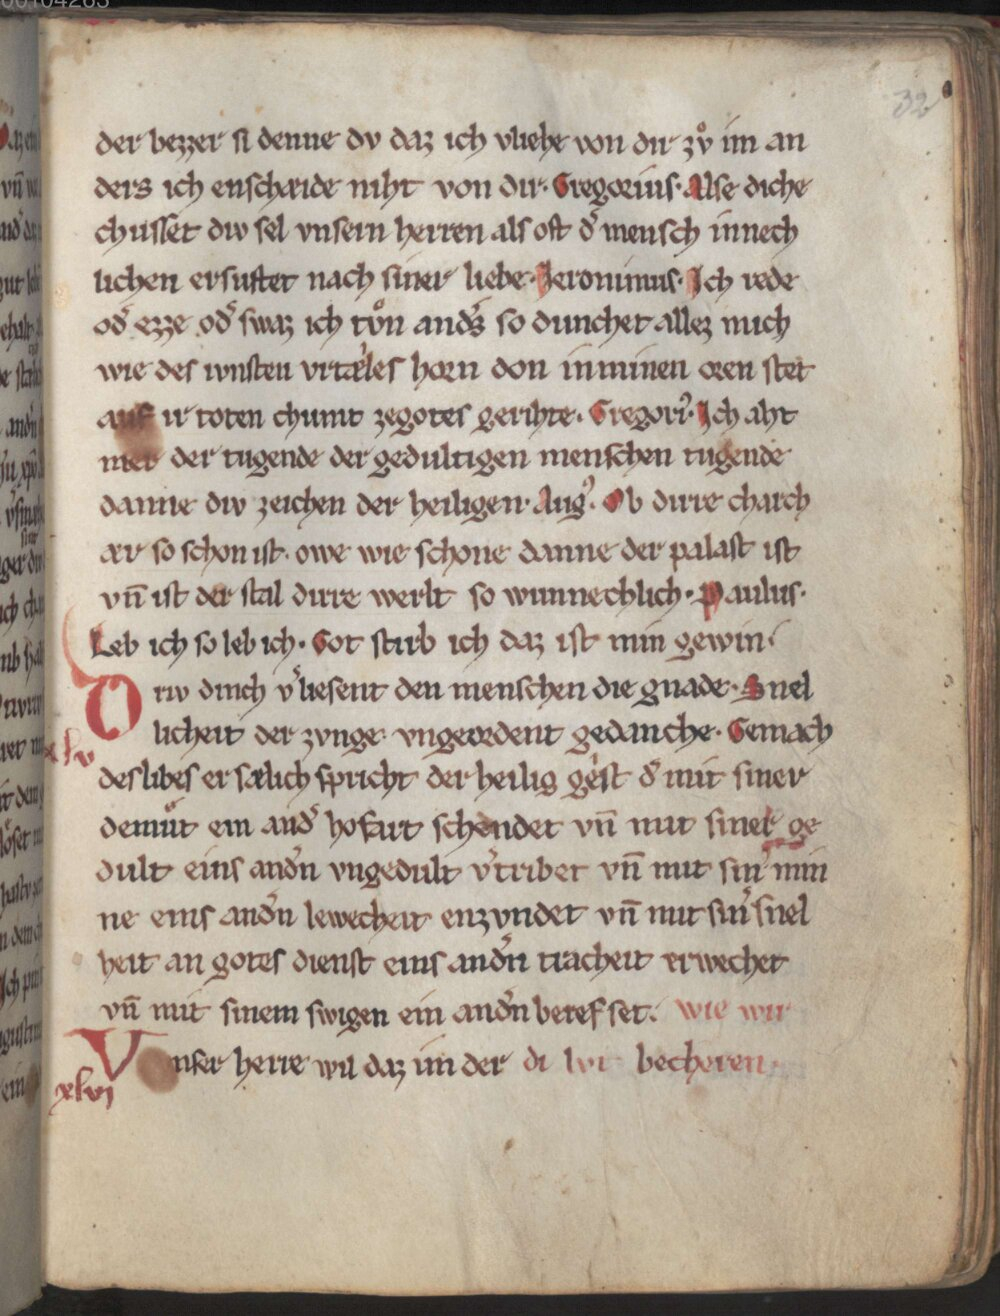 32
der bezzer si denne dv daz ich vliehe von dir zvͦ im an
ders ich enschæide niht von dir· Gregorius· Alse diche
chusset div sel vnsern herren als oft dˀ mensch innech
lichen ersuftet nach siner liebe· Jeronimus· Ich rede
odˀ ezze odˀ swaz ich tvͦn andˀs so dunchet allez mich
wie des ivnsten vrtæles horn don in minen oren stet
auf ir toten chumt zegotes gerihte· Gregoriˀ· Ich aht
mer der tugende der gedultigen menschen tugende
danne div zeichen der heiligen· Augˀ· Ob dirre charch
ær so schon ist· owe wie schone danne der palast ist
vn̄ ist der stal dirre werlt so wunnechlich· Paulus·
Leb ich so leb ich· Got stirb ich daz ist min gewin·
Driv dinch vˀliesent den menschen die gnade· Snel
licheit der zvnge vngeordent gedanche· Gemach
xlv
des libes er sælich spricht der heilig gest dˀ mit siner
demuͦt ein andˀ hofart schendet vn̄ mit siner ge
dult eins andˀn vngedult vˀtribet vn̄ mit sinˀ min
ne eins andˀn lewecheit enzvndet vn̄ mit sinˀ snel
heit an gotes dienst eins andˀn tracheit erwechet
vn̄ mit sinem swigen ein andˀn berefset· wie wir
Vnser herre wil daz im der di becheren·
xlvi